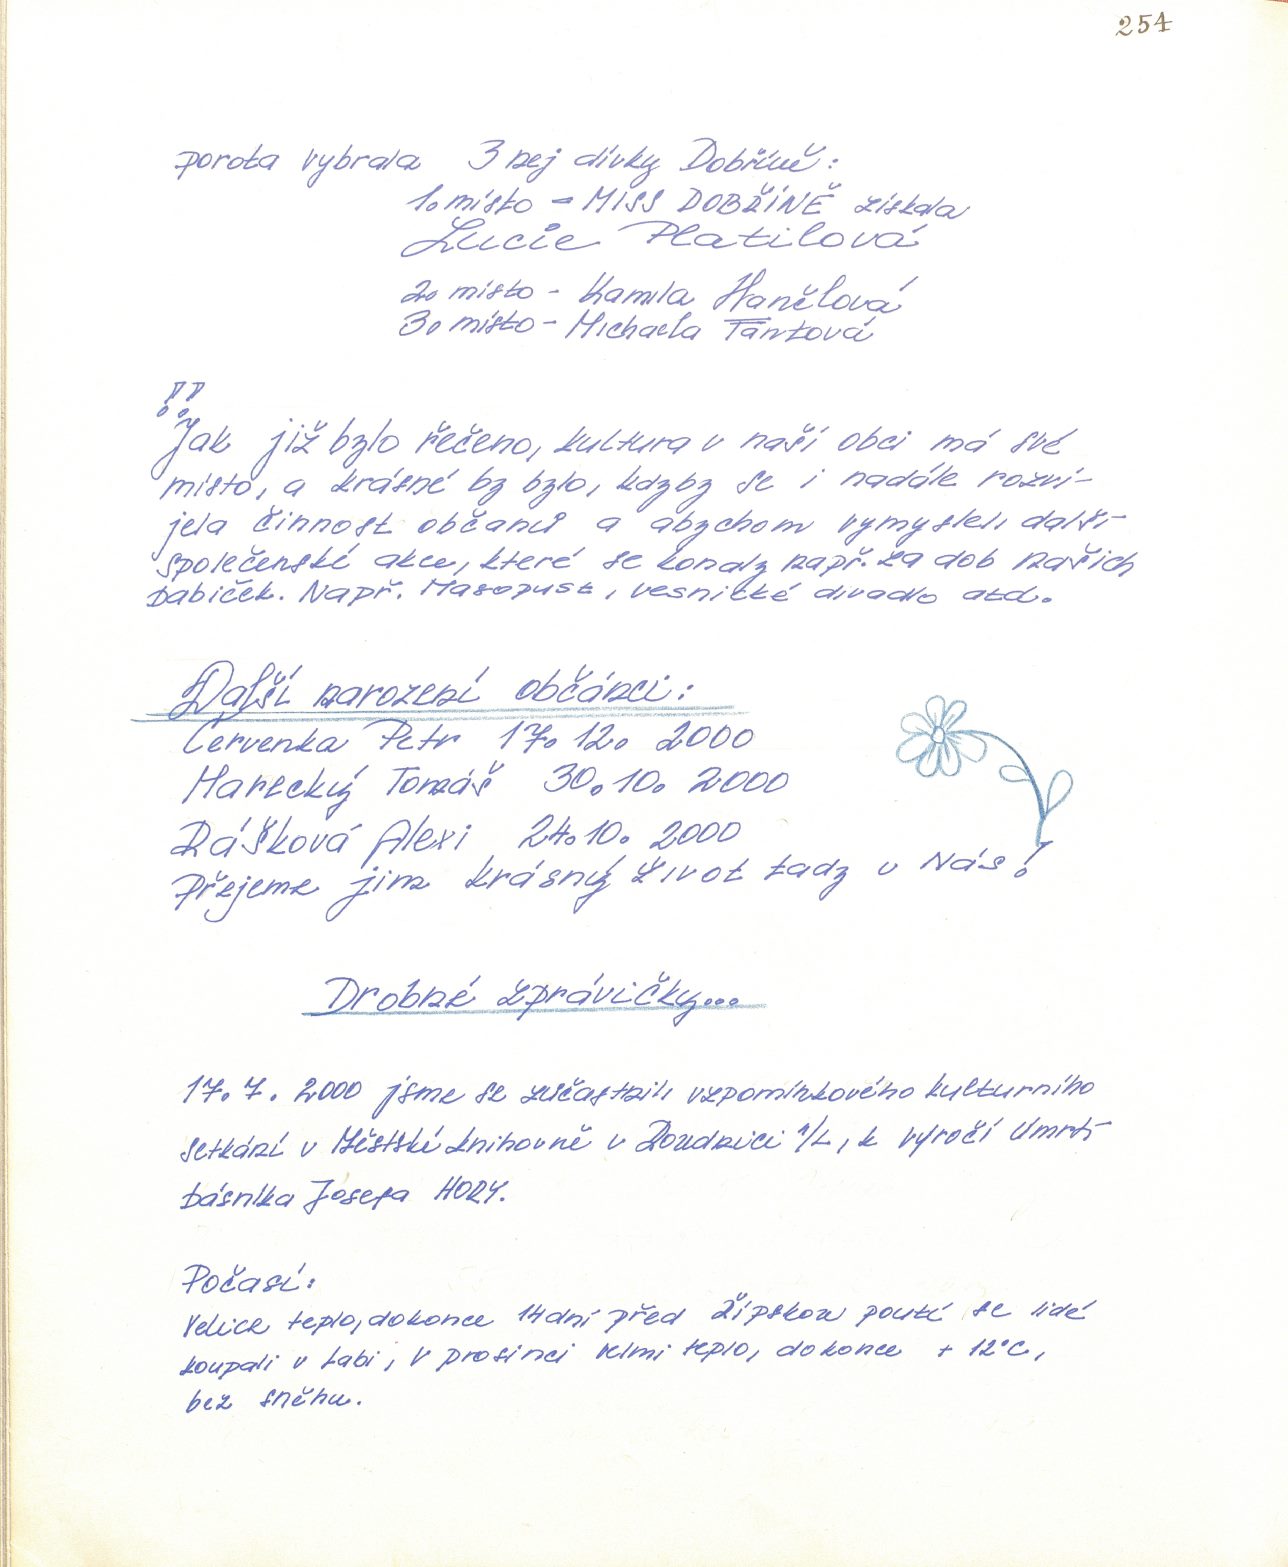 254
porota vybrala 3 nej dívky Dobříně:
1. místo - MISS DOBŘÍNĚ získala
Lucie Platilová
2. místo - Kamila Hanělová
3. místo - Michaela Tantová
!!
Jak již bylo řečeno, kultura v naší obci má své
místo, a krásné by bylo, kdyby se i nadále rozví-
jela činnost občanů a abychom vymysleli další
společenské akce, které se konaly např. za dob našich
babiček. Např. Masopust, vesnické divadlo atd.
Další narození občánci:
Červenka Petr 17. 12. 2000
Marecký Tomáš 30. 10. 2000
Rášková Alexi 24. 10. 2000
Přejeme jim krásný život tady u Nás!
Drobné zprávičky...
17. 7. 2000 jsme se zúčastnili vzpomínkového kulturního
setkání v Městské knihovně v Roudnici n/L, k výročí úmrtí
básníka Josefa HORY.
Počasí:
Velice teplo, dokonce 14 dní před Žípskou poutí se lidé
koupali v Labi, v prosinci velmi teplo, dokonce + 12°C,
bez sněhu.